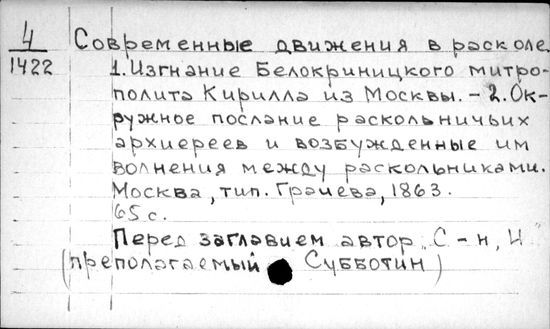 4
1422
Современные движения в расколе.
1. Изгнание Белокриницкого митро-
полита Кирилла из Москвы. – 2. Ок-
ружное послание раскольничьих
архиереев и возбужденные им
волнения между раскольниками.
Москва, тип. Грачева, 1863.
65 с.
Перед заглавием автор „С – н, Н"
(преполагаемый Субботин)